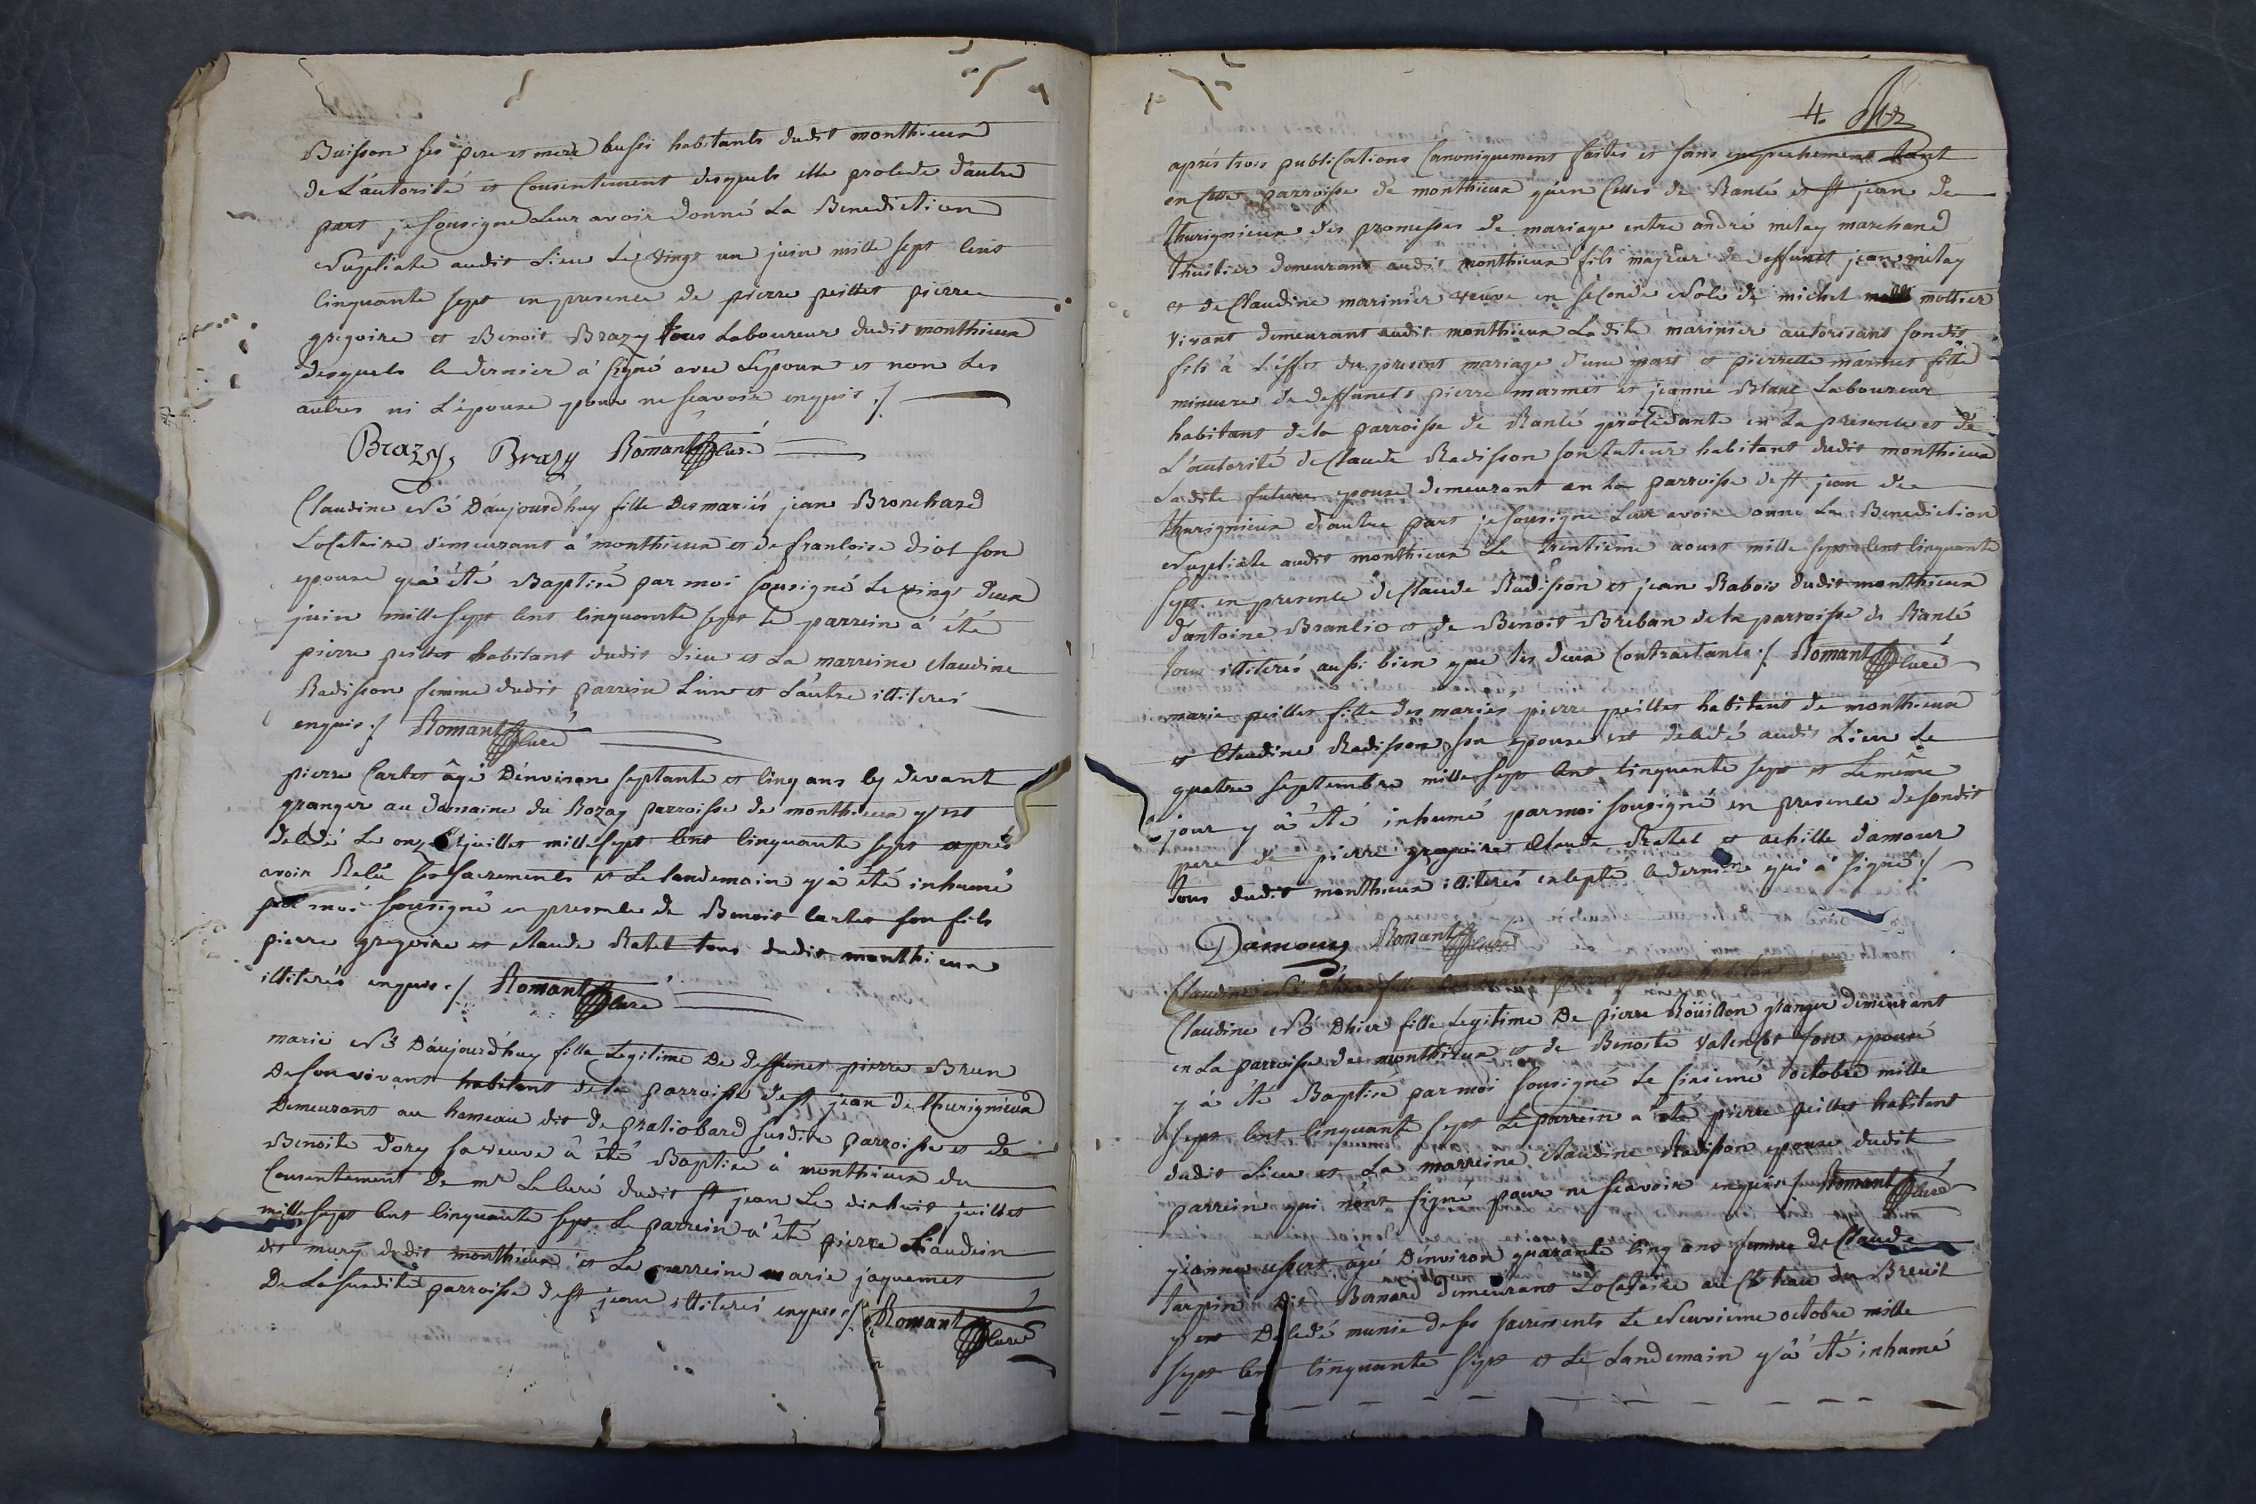 Buisson ses pere et mere aussi habitants dudit monthieux
de L'autorité et Consentement desquels elle procede d'autre
part je sousigné Leur avoir donné La Benediction
Nuptiale audit Lieu Le vingt un juin mille sept cent
cinquante sept en presence de pierre peillet pierre
gregoire et Benoit Brazy tous Laboureur dudit monthieux
desquels le dernier à signé avec L'epoux et non Les
autres ni L'épouse pour ne scavoir enquis ./.
Brazy, Brazy Romant Curé
Claudine Né D'aujourd'huy fille Des mariés jean Bronchard
Locataire demeurant à monthieux et de francoise diot son
epouse y à été Baptisé par moi sousigné Le vingt deux
juin mille sept cent cinquante sept Le parrein à été
pierre peillet habitant dudit Lieu et La marreine claudine
Radisson femme dudit parrein L'un et L'autre illiterés
enquis ./. Romant Curé
pierre Cartet âgé D'environ septante et cinq ans cy devant
granger au domaine du Rozay parroisse de monthieux y est
decedé Le onze juillet mille sept cent cinquante sept après
avoir Recû ses sacrements et Le landemain y à été inhumé
par moi sousigné en presence de Benoit Cartet son fils
pierre gregoire et claude Ratet tous dudit monthieux
illiterés enquis ./. Romant Curé
marie Né D'aujourd'huy fille Legitime De deffunet pierre Brun
De son vivant habitant de la parroisse de st jean de thurignieux
Demeurant au hameau dit de pratiobard susdite parroisse et de
Benoite dory sa veuve à été Baptisé à monthieux du
Consentement De mr Le Curé dudit st jean Le dix huit juillet
mille sept cent cinquante sept Le parrein à été pierre Liaudin
dit mury dudit monthieux et La marreine marie jaquemet
De La susdite parroisse de st jean illiterés enquis ./. Romant Curé
4.
aprés trois publications Canoniquement faites et sans empechement tant
en Cette parroisse de monthieux qu'en Celles de Rancé et st jean de
thurignieux des promesses de mariage entre andré milay marchand
thuilier demeurant audit monthieux fils majeur de deffunct jean milay
et de Claudine marinier veuve en seconde Noce de michel mottier
vivant demeurant audit monthieux La dite marinier autorisant sondit
fils à L'effet du present mariage d'une part et pierrette marmet fille
mineure de deffunets pierre marmet et jeanne Blanc Laboureur
habitant de la parroisse de Rancé procedante en La presence et de
L'autorité de Claude Radisson son tuteur habitant dudit monthieux
La dite future epouse demeurant en La parroisse de st jean de
thurignieux d'autre part je sousigné Leur avoir donné La Benediction
Nuptiale audit monthieux Le trentieme aoust mille sept cent cinquante
sept en presence de Claude Radisson et jean Rabois dudit monthieux
d'antoine Branlio et de Benoit Breban de la parroisse de Rancé
tous illiterés aussi bien que Les deux Contractants ./. Romant Curé
marie peillet fille des mariés pierre peillet habitant de monthieux
et Claudine Radisson son epouse est decedé audit Lieu Le
quatre septembre mille sept cent cinquante sept et Le même
jour y à été inhumé par moi sousigné en presence de sondit
pere de pierre gregoire Claude Ratet et achille damour
tous dudit monthieux illiterés excepté Le dernier qui à signé ./.
Damour Romant Curé
Claudine Né
Claudine Né D'hier fille Legitime De pierre Roüillon granger demeurant
en La parroisse de monthieux et de Benoite valensot son epouse
y à été Baptisé par moi sousigné Le sixieme octobre mille
sept cent cinquante sept Le parrein à été pierre peillet habitant
dudit Lieu et La marreine Claudine Radisson epouse dudit
parrein qui n'ont signé pour ne scavoir enquis ./. Romant Curé
jeanne agé D'environ quarante cinq ans femme De Claude
tarpin dit Bernard demeurant Locataire au Château du Breuil
y est Decedé munie de ses sacrements Le Neuvieme octobre mille
sept cent cinquante sept et Le Landemain y à été inhumé